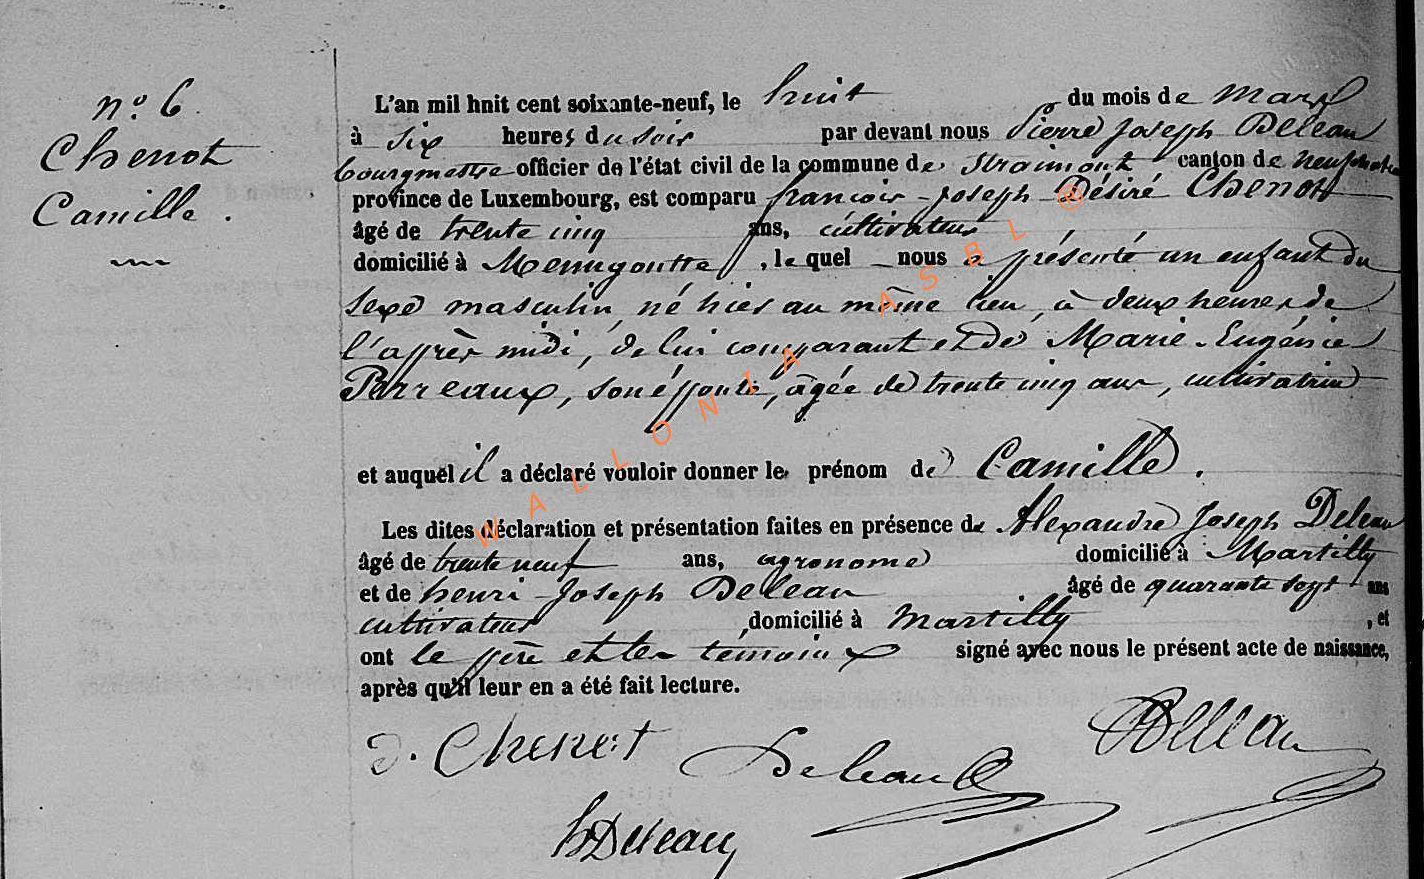 n° 6
Chenot
Camille.
L'an mil huit cent soixante-neuf, le huit du mois de Mars
à six heures du soir par devant nous Pierre Joseph Deleau
bourgmestre officier de l'état civil de la commune de Straimont canton de neufchateau
province de Luxembourg, est comparu francois-Joseph Désiré Chenot
âgé de trente cinq ans, cultivateur
domicilié à Menugoutte, le quel nous a présenté un enfant du
sexe masculin, né hier au même lieu, à deux heures de
l'après midi, de lui comparant et de Marie-Eugénie
Perreaux, son épouse, âgée de trente cinq ans, cultivatrice
et auquel il a déclaré vouloir donner le prénom de Camille.
Les dites déclaration et présentation faites en présence de Alexandre Joseph Deleau
âgé de trente neuf ans, agronome domicilié à Martilly
et de henri-Joseph Deleau âgé de quarante sept ans
cultivateur, domicilié à Martilly, et
ont le père et les témoins signé avec nous le présent acte de naissance,
après qu'il leur en a été fait lecture.
D. Chenot Deleau Deleau
h Deleau
WALLONIA ASBL ®